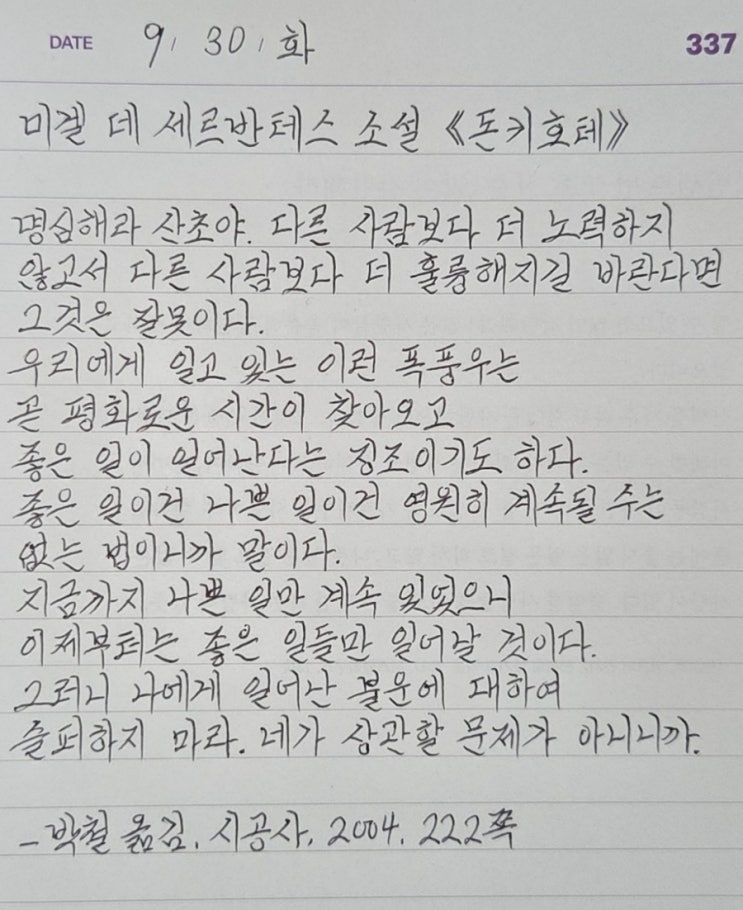 DATE 9/ 30/ 화 337
미겔 데 세르반테스 소설 《돈키호테》
명심해라 산초야. 다른 사람보다 더 노력하지
않고서 다른 사람보다 더 훌륭해지길 바란다면
그것은 잘못이다.
우리에게 일고 있는 이런 폭풍우는
곧 평화로운 시간이 찾아오고
좋은 일이 일어난다는 징조이기도 하다.
좋은 일이건 나쁜 일이건 영원히 계속될 수는
없는 법이니까 말이다.
지금까지 나쁜 일만 계속 있었으니
이제부터는 좋은 일들만 일어날 것이다.
그러니 나에게 일어난 불운에 대하여
슬퍼하지 마라. 네가 상관할 문제가 아니니까.
- 박철 옮김, 시공사, 2004. 222쪽